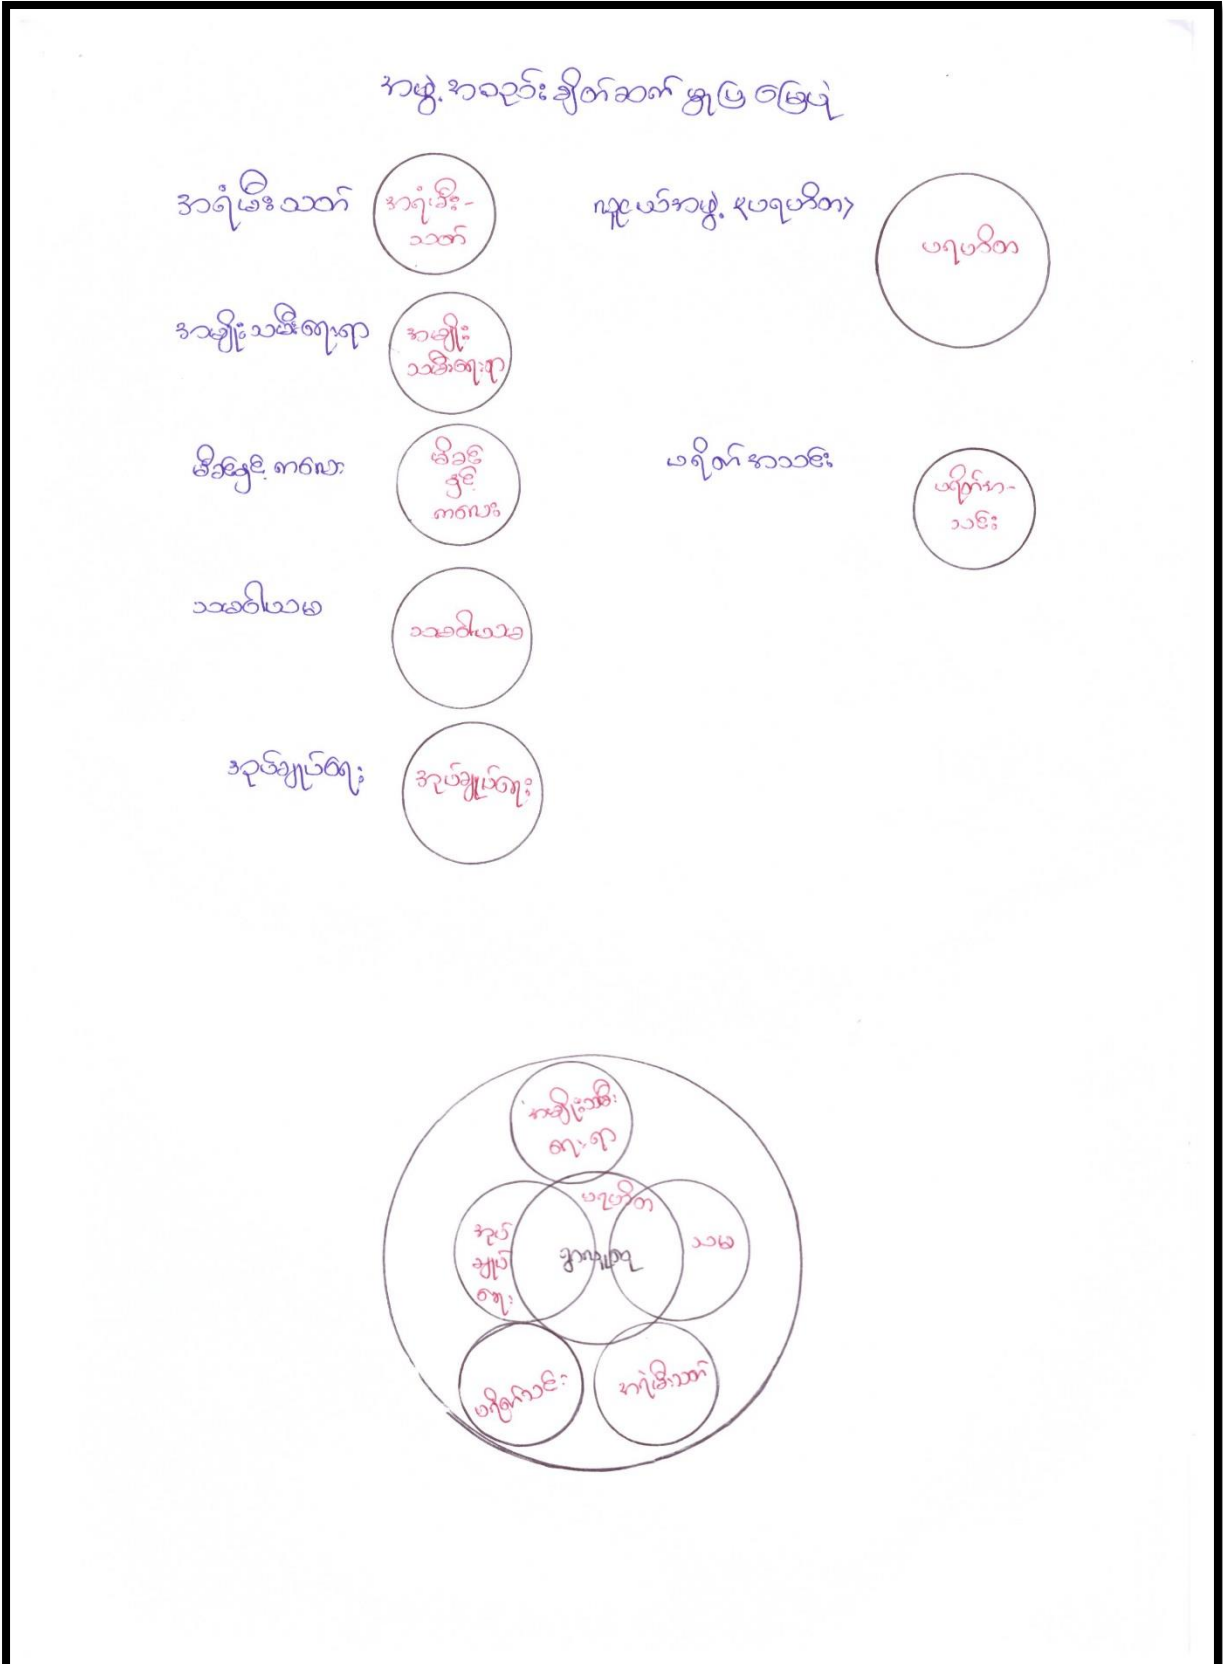 အဖွဲ့အစည်းချိတ်ဆက်မှုပြမြေပုံ
အရံမီးသတ်
အရံမီး-
သတ်
အမျိုးသမီးရေးရာ
အမျိုး
သမီးရေးရာ
မိခင်နှင့်ကလေး
မိခင်
နှင့်
ကလေး
သမဝါယမ
သမဝါယမ
အုပ်ချုပ်ရေး
အုပ်ချုပ်ရေး
လူငယ်အဖွဲ့ (ပရဟိတ)
ပရဟိတ
ပရိတ်အသင်း
ပရိတ်အ-
သင်း
အမျိုးသမီး
ရေးရာ
ပရဟိတ
အုပ်
ချုပ်
ရေး
သမ
ပရိတ်သင်း
အရံမီးသတ်